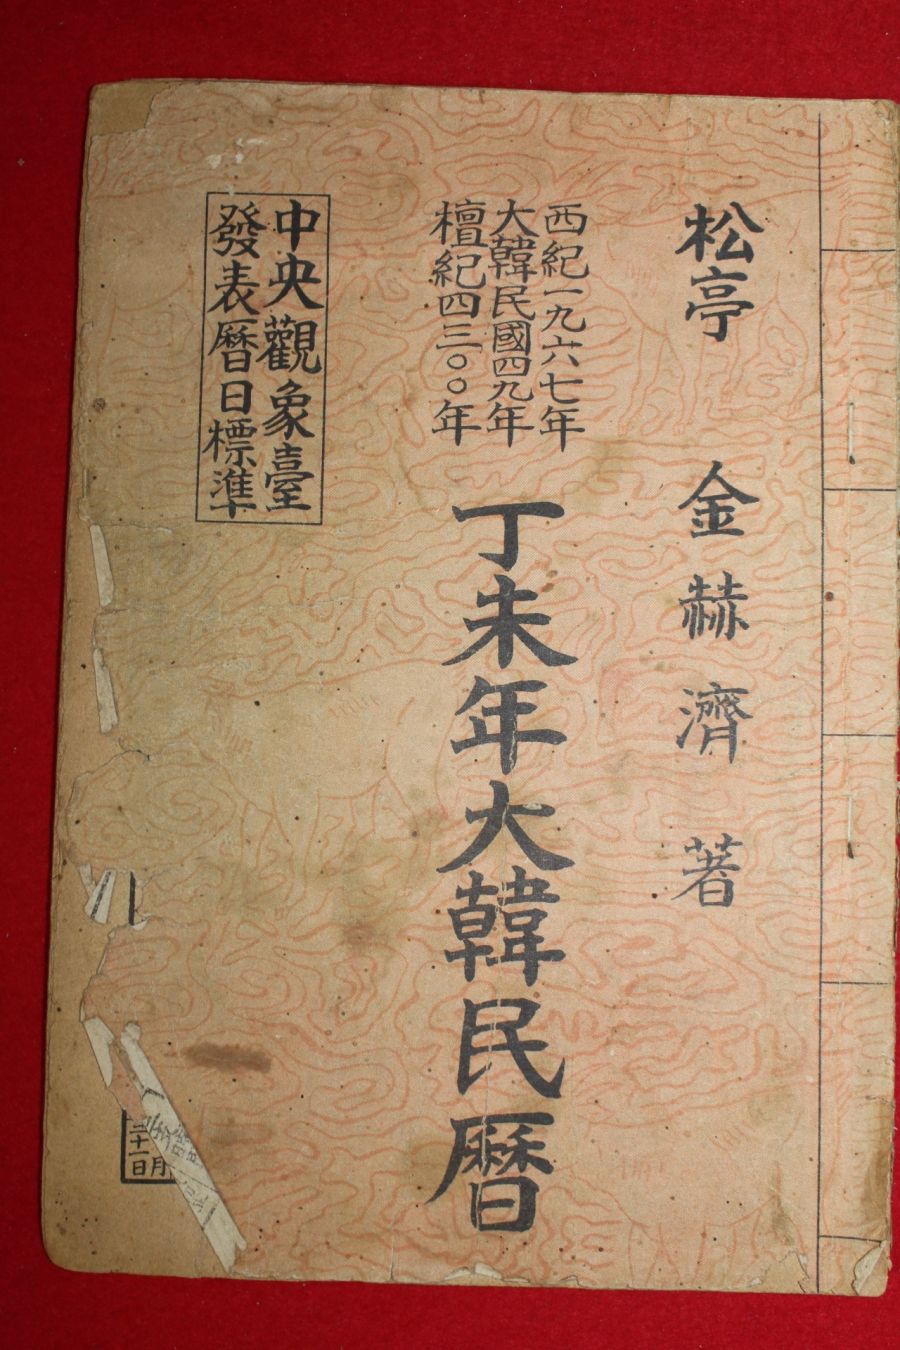 松亭 金赫濟 著
西紀一九六七年
大韓民國四九年
檀紀四三〇〇年
丁未年大韓民曆
中央觀象臺
發表曆日標準
月
二十一日